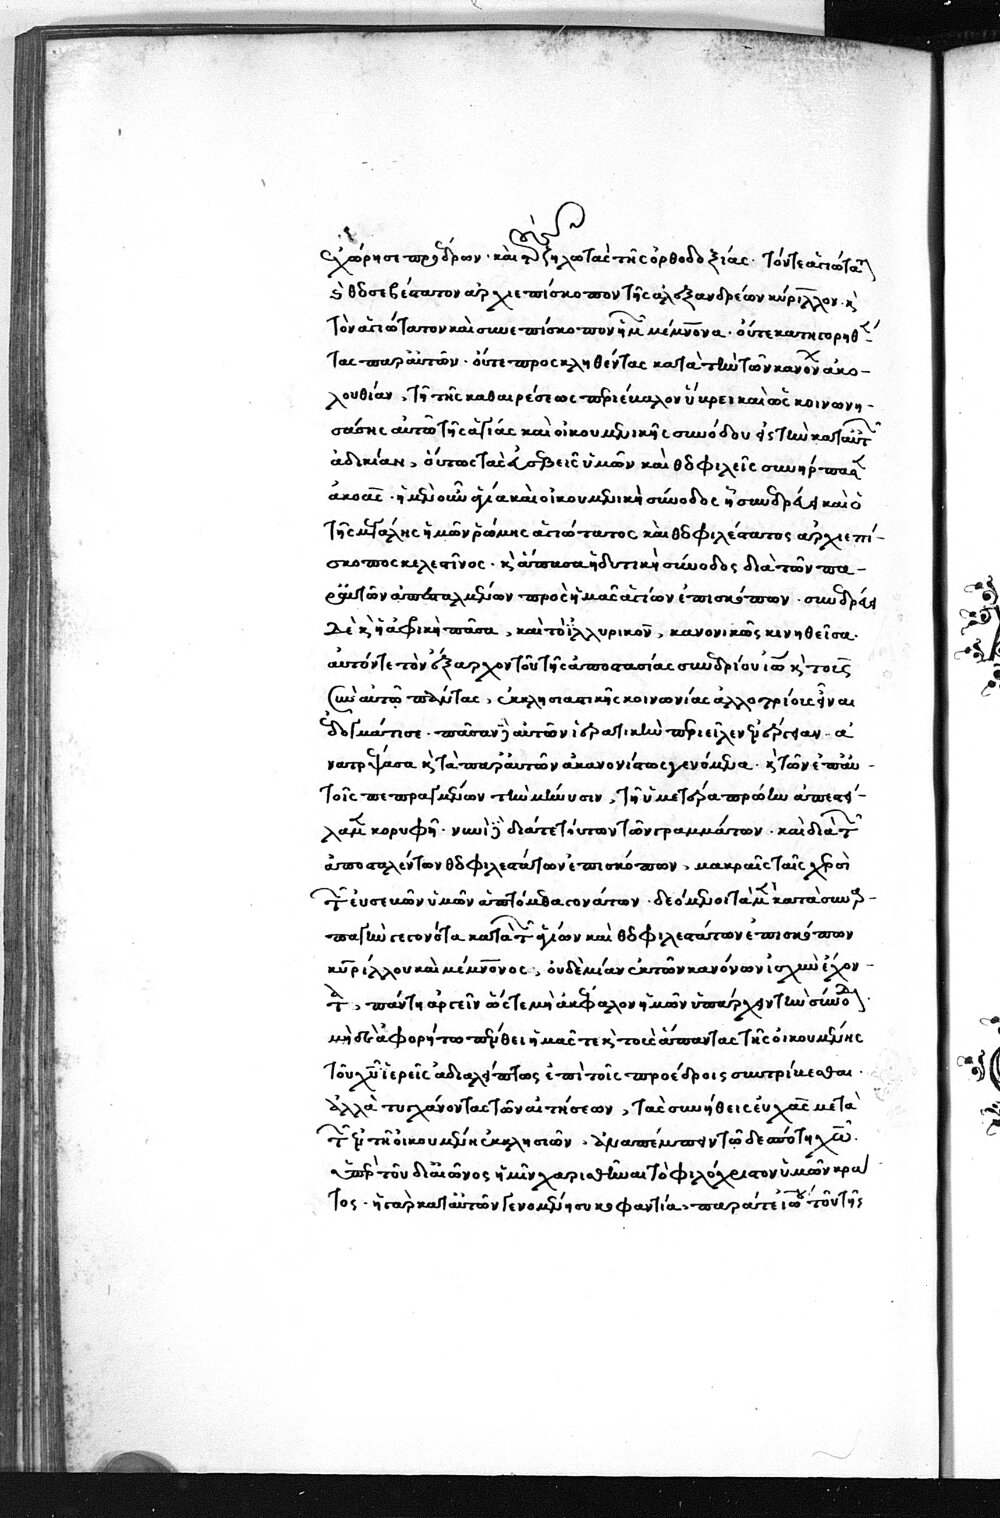 ἐχώρησε προέδρων· καὶ τοὺς ζηλωτὰς τῆς ὀρθοδοξίας· τόν τε ἁγιώτατον
καὶ θεοσεβέστατον ἀρχιεπίσκοπον τῆς ἀλεξανδρέων κύριλλον· καὶ
τὸν ἁγιώτατον καὶ συνεπίσκοπον ἡμῶν μέμνονα· οὔτε κατηγορηθέν-
τας παρ' αὐτῶν· οὔτε προσκληθέντας κατὰ τὴν τῶν κανόνων ἀκο-
λουθίαν, τῇ τῆς καθαιρέσεως περιέβαλον ὕβρει καὶ ὡς κοινωνη-
σάσης αὐτῷ τῆς ἁγίας καὶ οἰκουμενικῆς συνόδου εἰς τὴν κατ' αὐτῶν
ἀδικίαν, οὕτως τὰς εὐσεβεῖς ὑμῶν καὶ θεοφιλεῖς συνήρπασαν
ἀκοάς· ἡ μὲν οὖν ἁγία καὶ οἰκουμενικὴ σύνοδος ᾗ συνεδρεύει καὶ ὁ
τῆς μεγάλης ἡμῶν ῥώμης ἁγιώτατος καὶ θεοφιλέστατος ἀρχιεπί-
σκοπος κελεστῖνος· καὶ ἅπασα ἡ δυτικὴ σύνοδος διὰ τῶν πα-
ρ' αὐτῶν ἀπεσταλμένων πρὸς ἡμᾶς ἁγίων ἐπισκόπων· συνεδρεύει
δὲ καὶ ἡ ἀφρικὴ πᾶσα, καὶ τὸ ἰλλυρικόν, κανονικῶς κινηθεῖσα·
αὐτόν τε τὸν ἐξάρχοντα τοῦ τῆς ἀποστασίας συνεδρίου ἰωάννην καὶ τοὺς
σὺν αὐτῷ πάντας, ἐκκλησιαστικῆς κοινωνίας ἀλλοτρίους εἶναι
ἐδογμάτισε· πᾶσαν γὰρ αὐτῶν ἱερατικὴν περιεῖλεν ἐνέργειαν· ἀ-
νατρέψασα καὶ τὰ παρ' αὐτῶν ἀκανονίστως γενόμενα· καὶ τῶν ἐπ' αὐ-
τοῖς πεπραγμένων τὴν μήνυσιν, τῇ ὑμετέρᾳ πρώην ἀπεστεί-
λαμεν κορυφῇ· νυνὶ δὲ διά τε τούτων τῶν γραμμάτων· καὶ διὰ τῶν
ἀποσταλέντων θεοφιλεστάτων ἐπισκόπων, μακραῖς ταῖς χερσὶ
τῶν εὐσεβῶν ὑμῶν ἁπτόμεθα γονάτων· δεόμενοι τὰ μὲν κατὰ συναρ-
παγὴν γεγονότα κατὰ τῶν ἁγίων καὶ θεοφιλεστάτων ἐπισκόπων
κυρίλλου καὶ μέμνονος, οὐδεμίαν ἐκ τῶν κανόνων ἰσχὺν ἔχον-
τα, πάντη ἀργεῖν ὥστε μὴ ἀκέφαλον ἡμῶν ὑπάρχειν τὴν σύνοδον·
μὴ δὲ ἀφορήτῳ πένθει ἡμᾶς τε καὶ τοὺς ἅπαντας τῆς οἰκουμένης
τοῦ χριστοῦ ἱερεῖς ἀδιαλείπτως ἐπὶ τοῖς προέδροις συντρίβεσθαι·
ἀλλὰ τυγχάνοντας τῶν αἰτήσεων, τὰς συνήθεις εὐχὰς μετὰ
τῶν ἐν τῇ οἰκουμένῃ ἐκκλησιῶν, ἀναπέμπειν τῷ δεσπότῃ χριστῷ·
ὑπὲρ τοῦ δι' αἰῶνος ἡμῖν χαρισθῆναι τὸ φιλόχριστον ὑμῶν κρά-
τος· ἡ γὰρ κατ' αὐτῶν γενομένη συκοφαντία, παρά τε ἰωάννου τοῦ τῆς